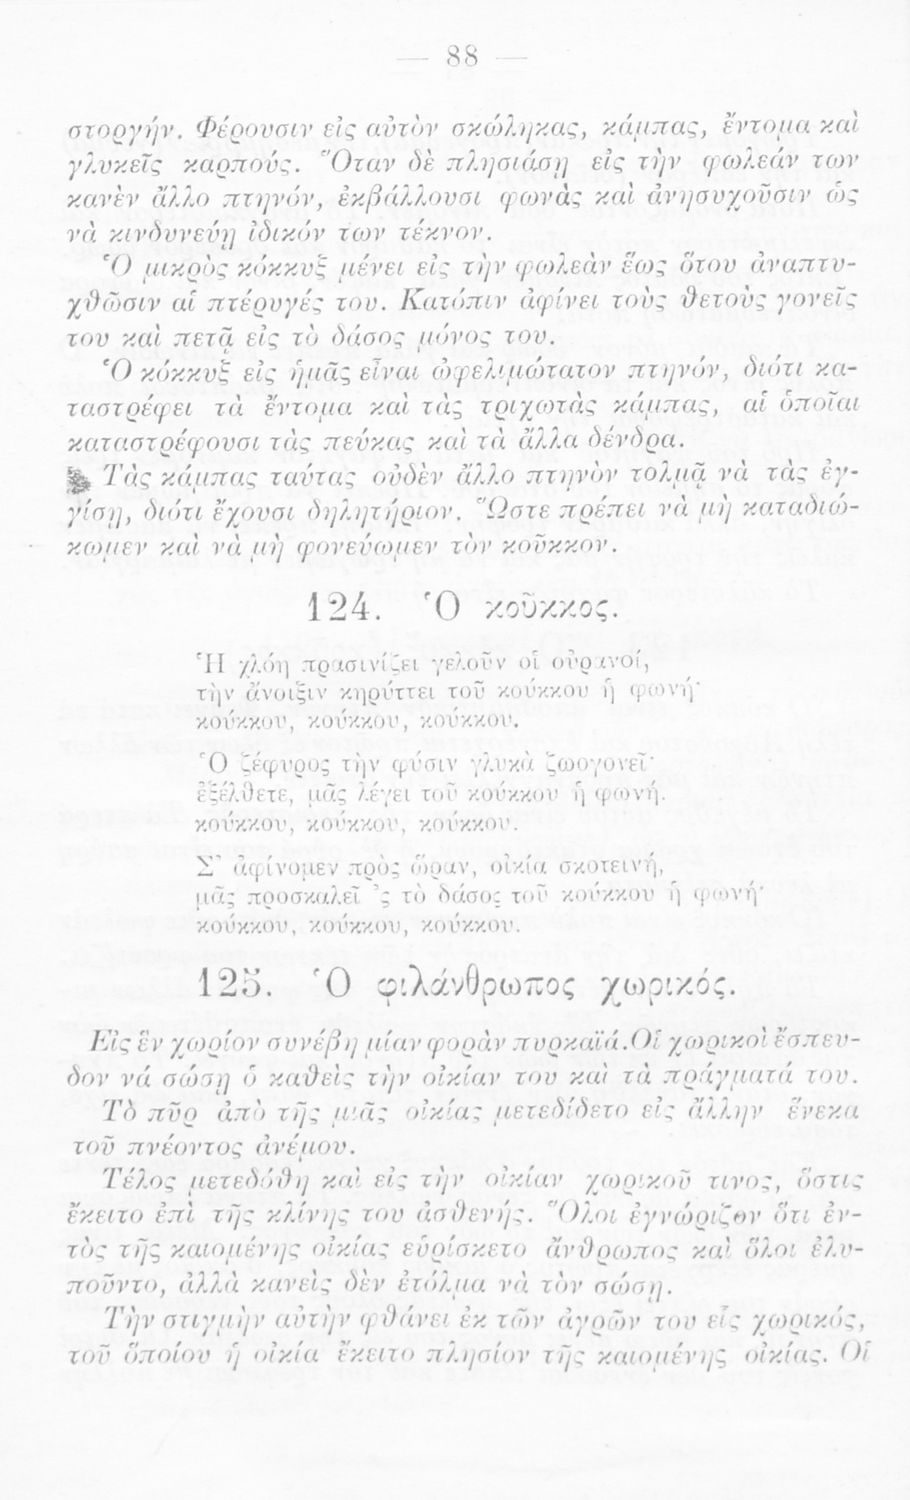 — 88 —
στοργήν. Φέρουσιν εἰς αὐτὸν σκώληκας, κάμπας, ἔντομα καὶ
γλυκεῖς καρποὺς. Ὅταν δὲ πλησιάσῃ εἰς τὴν φωλεάν των
κανὲν ἄλλο πτηνόν, ἐκβάλλουσι φωνὰς καὶ ἀνησυχοῦσιν ὡς
νὰ κινδυνεύῃ ἰδικόν των τέκνον.
Ὁ μικρὸς κόκκυξ μένει εἰς τὴν φωλεὰν ἕως ὅτου ἀναπτυ-
χθῶσιν αἱ πτέρυγές του. Κατόπιν ἀφίνει τοὺς θετοὺς γονεῖς
του καὶ πετᾷ εἰς τὸ δάσος μόνος του.
Ὁ κόκκυξ εἰς ἡμᾶς εἶναι ὠφελιμώτατον πτηνόν, διότι κα-
ταστρέφει τὰ ἔντομα καὶ τὰς τριχωτὰς κάμπας, αἱ ὁποῖαι
καταστρέφουσι τὰς πεύκας καὶ τὰ ἄλλα δένδρα.
Τὰς κάμπας ταύτας οὐδὲν ἄλλο πτηνὸν τολμᾷ νὰ τὰς ἐγ-
γίσῃ, διότι ἔχουσι δηλητήριον. Ὥστε πρέπει νὰ μὴ καταδιώ-
κωμεν καὶ νὰ μὴ φονεύωμεν τὸν κοῦκκον.
124. Ὁ κοῦκκος.
Ἡ χλόη πρασινίζει γελοῦν οἱ οὐρανοί,
τὴν ἄνοιξιν κηρύττει τοῦ κούκκου ἡ φωνή·
κούκκου, κούκκου, κούκκου.
Ὁ ζέφυρος τὴν φύσιν γλυκὰ ζωογονεῖ·
ἐξέλθετε, μᾶς λέγει τοῦ κούκκου ἡ φωνή.
κούκκου, κούκκου, κούκκου.
Σ' ἀφίνομεν πρὸς ὥραν, οἰκία σκοτεινή,
μᾶς προσκαλεῖ 'ς τὸ δάσος τοῦ κούκκου ἡ φωνή·
κούκκου, κούκκου, κούκκου.
125. Ὁ φιλάνθρωπος χωρικός.
Εἰς ἓν χωρίον συνέβη μίαν φορὰν πυρκαϊά. Οἱ χωρικοὶ ἔσπευ-
δον νά σώσῃ ὁ καθεὶς τὴν οἰκίαν του καὶ τὰ πράγματά του.
Τὸ πῦρ ἀπὸ τῆς μιᾶς οἰκίας μετεδίδετο εἰς ἄλλην ἕνεκα
τοῦ πνέοντος ἀνέμου.
Τέλος μετεδόθη καὶ εἰς τὴν οἰκίαν χωρικοῦ τινος, ὅστις
ἔκειτο ἐπὶ τῆς κλίνης του ἀσθενής. Ὅλοι ἐγνώριζον ὅτι ἐν-
τὸς τῆς καιομένης οἰκίας εὑρίσκετο ἄνθρωπος καὶ ὅλοι ἐλυ-
ποῦντο, ἀλλὰ κανεὶς δὲν ἐτόλμα νὰ τὸν σώσῃ.
Τὴν στιγμὴν αὐτὴν φθάνει ἐκ τῶν ἀγρῶν του εἷς χωρικός,
τοῦ ὁποίου ἡ οἰκία ἔκειτο πλησίον τῆς καιομένης οἰκίας. Οἱ